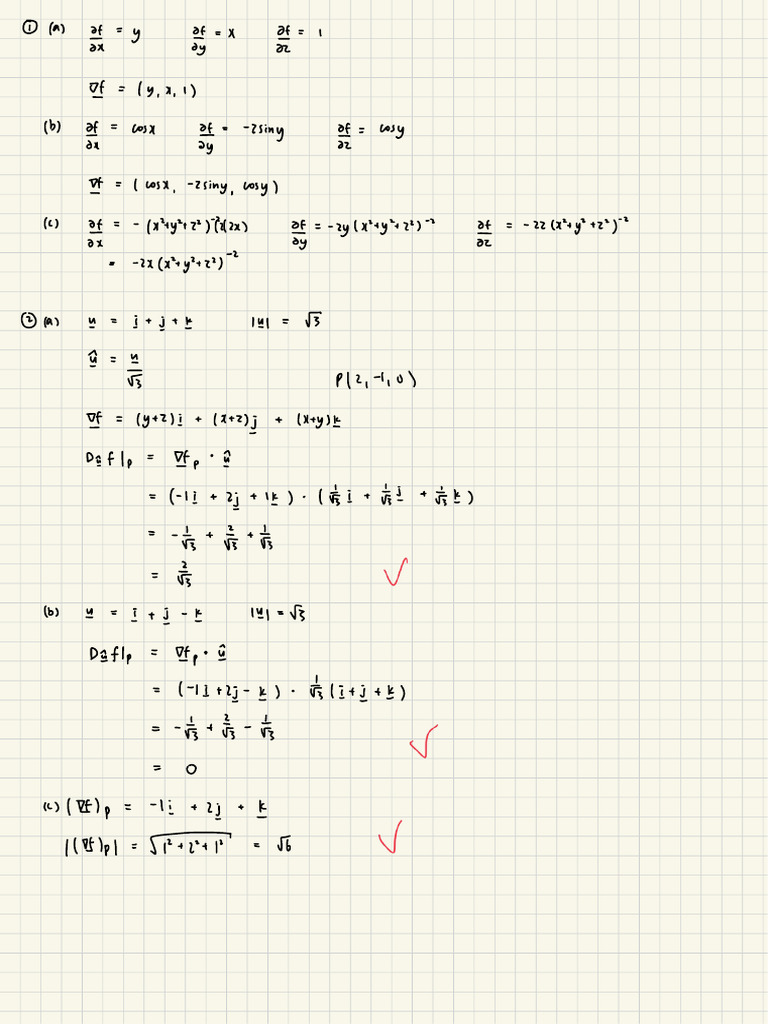 ① (a) ∂f/∂x = y ∂f/∂y = x ∂f/∂z = 1
∇f = (y, x, 1)
(b) ∂f/∂x = cosx ∂f/∂y = -2siny ∂f/∂z = cosy
∇f = (cosx, -2siny, cosy)
(c) ∂f/∂x = -(x²+y²+z²)⁻²(2x) ∂f/∂y = -2y(x²+y²+z²)⁻² ∂f/∂z = -2z(x²+y²+z²)⁻²
= -2x(x²+y²+z²)⁻²
② (a) u = i + j + k |u| = √3
û = u/√3
P(2, -1, 0)
∇f = (y+z)i + (x+z)j + (x+y)k
Dûf|p = ∇fp · û
= (-1i + 2j + 1k) · (1/√3 i + 1/√3 j + 1/√3 k)
= -1/√3 + 2/√3 + 1/√3
= 2/√3
(b) u = i + j - k |u| = √3
Dûf|p = ∇fp · û
= (-1i + 2j - k) · 1/√3 (i + j + k)
= -1/√3 + 2/√3 - 1/√3
= 0
(c) (∇f)p = -1i + 2j + k
|(∇f)p| = √(1² + 2² + 1²) = √6